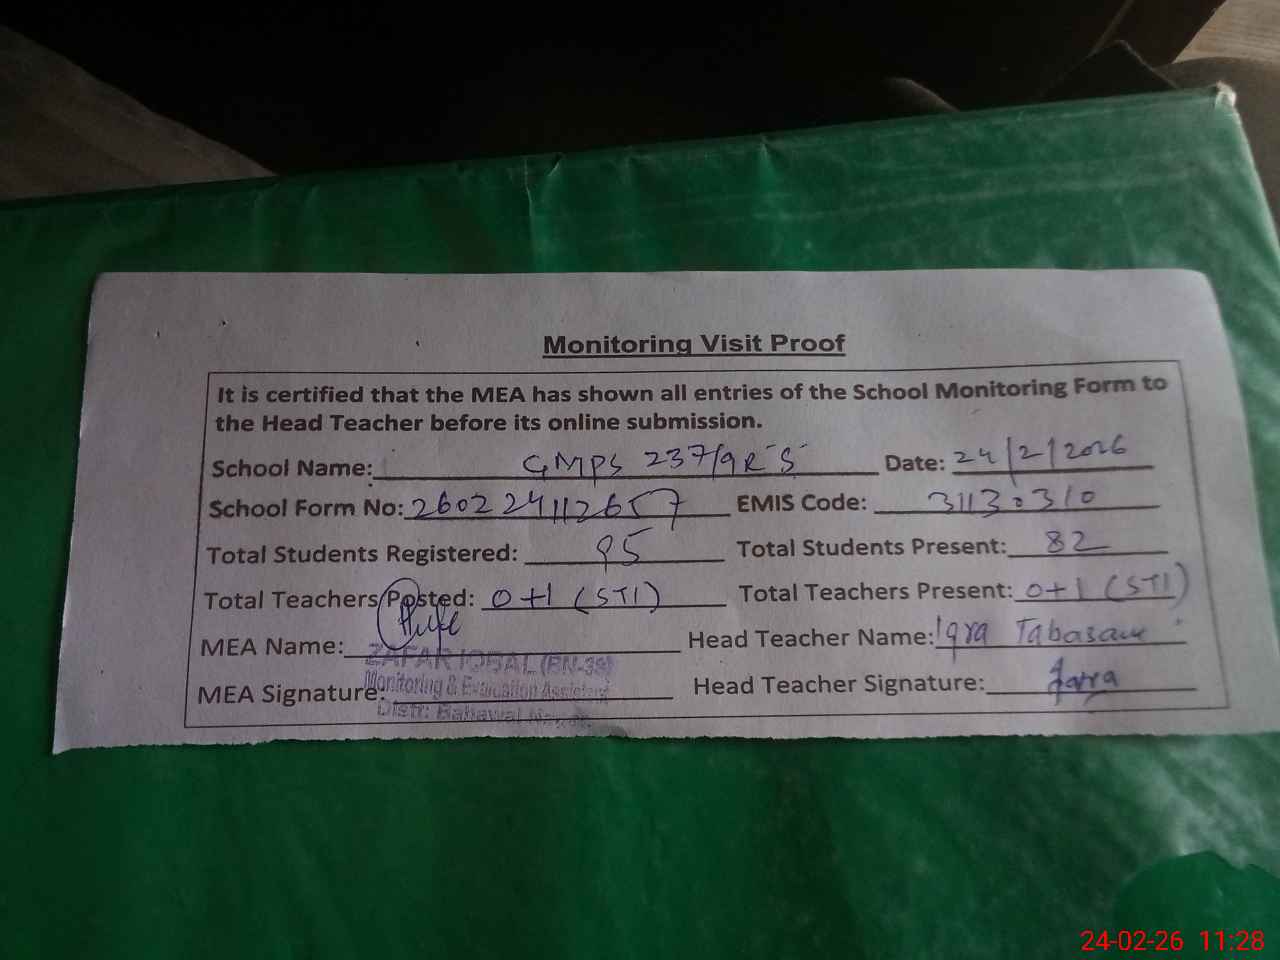 Monitoring Visit Proof
It is certified that the MEA has shown all entries of the School Monitoring Form to
the Head Teacher before its online submission.
School Name: GMPS 237/9R "S" Date: 24/2/2026
School Form No: 260224112657 EMIS Code: 31130310
Total Students Registered: 95 Total Students Present: 82
Total Teachers Posted: 0+1 (STI) Total Teachers Present: 0+1 (STI)
MEA Name: Head Teacher Name: Iqra Tabasam
ZAFAR IQBAL (BN-39)
Monitoring & Evaluation Assistant
MEA Signature: Head Teacher Signature: Iqra
Distt: Bahawal
24-02-26 11:28